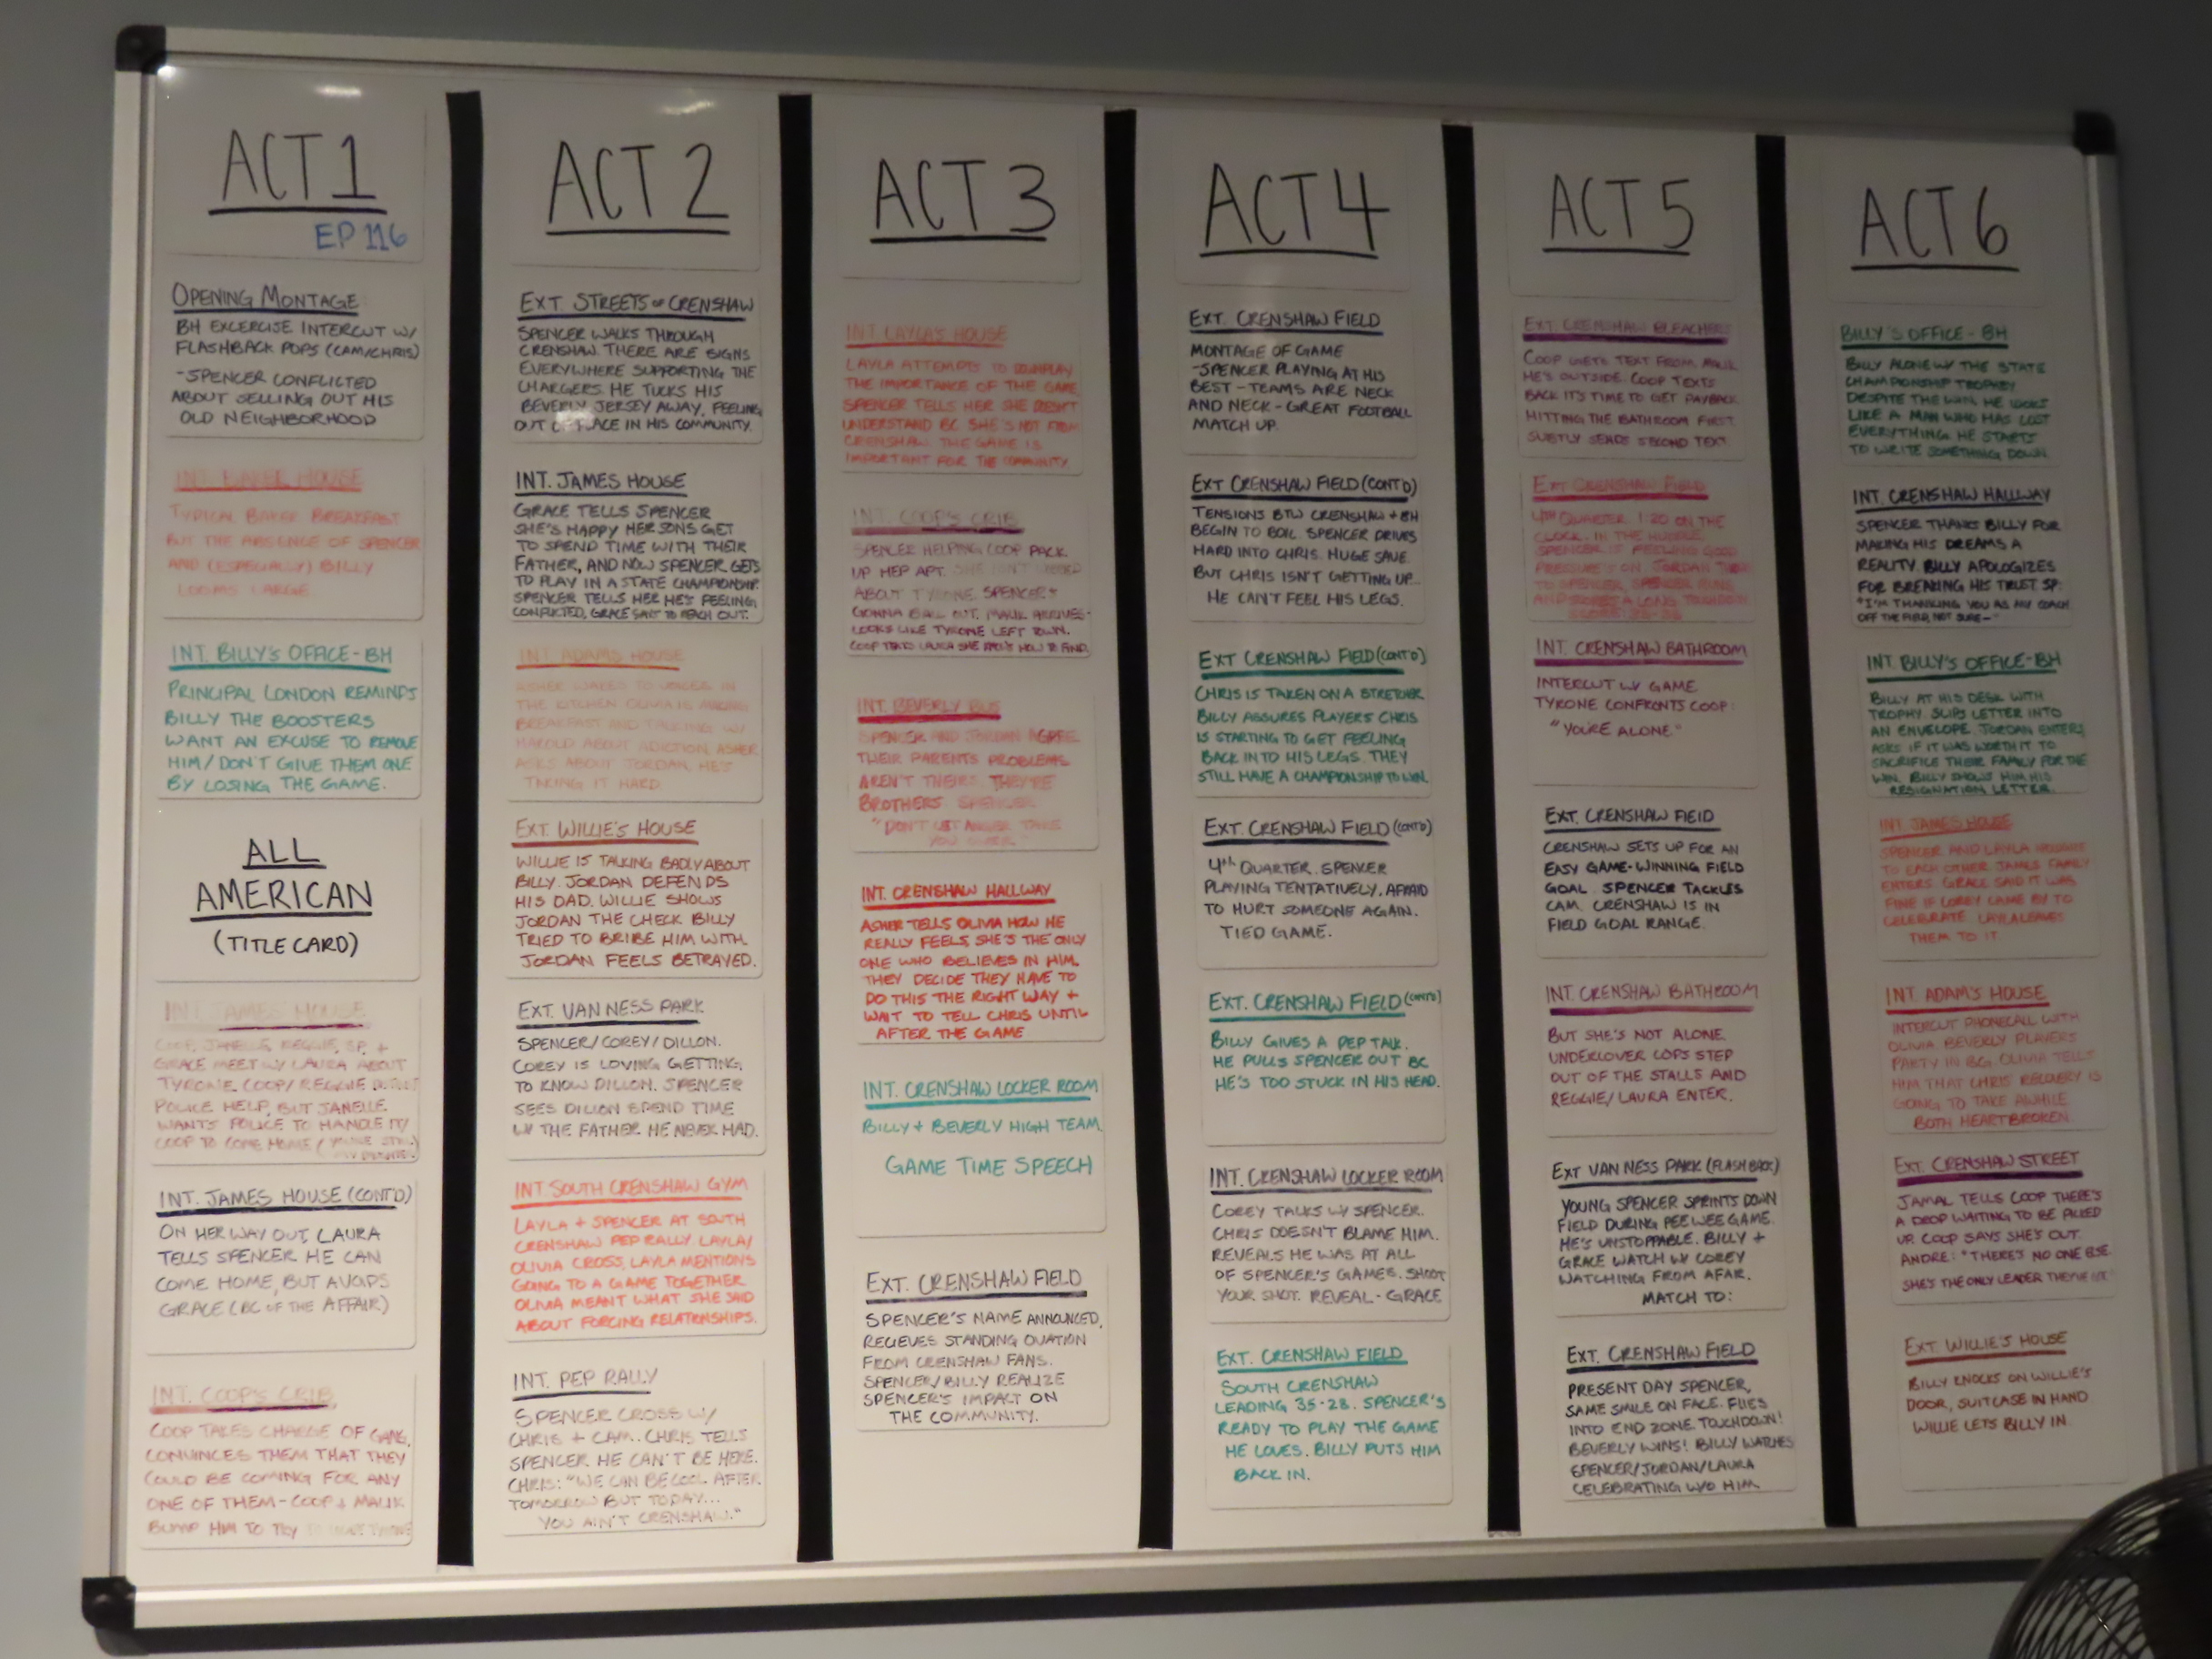 ACT 1
EP 116
OPENING MONTAGE
BH EXCERCISE INTERCUT W/
FLASHBACK POPS (CAM/CHRIS)
-SPENCER CONFLICTED
ABOUT SELLING OUT HIS
OLD NEIGHBORHOOD
INT. BAKER HOUSE
TYPICAL BAKER BREAKFAST
BUT THE ABSENCE OF SPENCER
AND (ESPECIALLY) BILLY
LOOMS LARGE
INT. BILLY'S OFFICE-BH
PRINCIPAL LONDON REMINDS
BILLY THE BOOSTERS
WANT AN EXCUSE TO REMOVE
HIM/DON'T GIVE THEM ONE
BY LOSING THE GAME.
ALL
AMERICAN
(TITLE CARD)
INT. JAMES HOUSE
COOP, JANELLE, REGGIE, SP. +
GRACE MEET W/ LAURA ABOUT
TYRONE. COOP/REGGIE
POLICE HELP, BUT JANELLE
WANTS POLICE TO HANDLE IT/
COOP TO COME HOME
INT. JAMES HOUSE (CONT'D)
ON HER WAY OUT, LAURA
TELLS SPENCER HE CAN
COME HOME, BUT AVOIDS
GRACE (BC OF THE AFFAIR)
INT. COOP'S CRIB
COOP TAKES CHARGE OF GANG,
CONVINCES THEM THAT THEY
COULD BE COMING FOR ANY
ONE OF THEM-COOP + MALIK
BUMP HIM TO TRY
ACT 2
EXT. STREETS OF CRENSHAW
SPENCER WALKS THROUGH
CRENSHAW. THERE ARE SIGNS
EVERYWHERE SUPPORTING THE
CHARGERS. HE TUCKS HIS
BEVERLY JERSEY AWAY, FEELING
OUT OF PLACE IN HIS COMMUNITY.
INT. JAMES HOUSE
GRACE TELLS SPENCER
SHE'S HAPPY HER SONS GET
TO SPEND TIME WITH THEIR
FATHER, AND NOW SPENCER GETS
TO PLAY IN A STATE CHAMPIONSHIP.
SPENCER TELLS HER HE'S FEELING
CONFLICTED, GRACE SAYS TO REACH OUT.
INT. ADAMS HOUSE
ASHER WAKES TO VOICES IN
THE KITCHEN OLIVIA IS MAKING
BREAKFAST AND TALKING W/
HAROLD ABOUT ADICTION. ASHER
ASKS ABOUT JORDAN. HE'S
TAKING IT HARD.
EXT. WILLIE'S HOUSE
WILLIE IS TALKING BADLY ABOUT
BILLY. JORDAN DEFENDS
HIS DAD. WILLIE SHOWS
JORDAN THE CHECK BILLY
TRIED TO BRIBE HIM WITH.
JORDAN FEELS BETRAYED.
EXT. VAN NESS PARK
SPENCER/COREY/DILLON.
COREY IS LOVING GETTING
TO KNOW DILLON. SPENCER
SEES DILLON SPEND TIME
W/ THE FATHER HE NEVER HAD.
INT. SOUTH CRENSHAW GYM
LAYLA + SPENCER AT SOUTH
CRENSHAW PEP RALLY. LAYLA/
OLIVIA CROSS, LAYLA MENTIONS
GOING TO A GAME TOGETHER
OLIVIA MEANT WHAT SHE SAID
ABOUT FORCING RELATIONSHIPS.
INT. PEP RALLY
SPENCER CROSS W/
CHRIS + CAM. CHRIS TELLS
SPENCER HE CAN'T BE HERE.
CHRIS: "WE CAN BE COOL AFTER
TOMORROW BUT TODAY...
YOU AIN'T CRENSHAW."
ACT 3
INT. LAYLA'S HOUSE
LAYLA ATTEMPTS TO DOWNPLAY
THE IMPORTANCE OF THE GAME.
SPENCER TELLS HER SHE DOESN'T
UNDERSTAND BC SHE'S NOT FROM
CRENSHAW. THE GAME IS
IMPORTANT FOR THE COMMUNITY
INT. COOP'S CRIB
SPENCER HELPING COOP PACK
UP HER APT. SHE ISN'T
ABOUT TYRONE. SPENCER'S
GONNA BALL OUT. MALIK ARRIVES-
LOOKS LIKE TYRONE LEFT TOWN.
INT. BEVERLY BUS
SPENCER AND JORDAN AGREE
THEIR PARENTS PROBLEMS
AREN'T THEIRS. THEY'RE
BROTHERS SPENCER:
"DON'T LET ANGER TAKE
YOU OVER."
INT. CRENSHAW HALLWAY
ASHER TELLS OLIVIA HOW HE
REALLY FEELS, SHE'S THE ONLY
ONE WHO BELIEVES IN HIM.
THEY DECIDE THEY HAVE TO
DO THIS THE RIGHT WAY +
WAIT TO TELL CHRIS UNTIL
AFTER THE GAME
INT. CRENSHAW LOCKER ROOM
BILLY + BEVERLY HIGH TEAM.
GAME TIME SPEECH
EXT. CRENSHAW FIELD
SPENCER'S NAME ANNOUNCED,
RECIEVES STANDING OVATION
FROM CRENSHAW FANS.
SPENCER/BILLY REALIZE
SPENCER'S IMPACT ON
THE COMMUNITY.
ACT 4
EXT. CRENSHAW FIELD
MONTAGE OF GAME
-SPENCER PLAYING AT HIS
BEST-TEAMS ARE NECK
AND NECK-GREAT FOOTBALL
MATCH UP.
EXT CRENSHAW FIELD (CONT'D)
TENSIONS BTW CRENSHAW + BH
BEGIN TO BOIL. SPENCER DRIVES
HARD INTO CHRIS. HUGE SAVE.
BUT CHRIS ISN'T GETTING UP...
HE CAN'T FEEL HIS LEGS.
EXT CRENSHAW FIELD (CONT'D)
CHRIS IS TAKEN ON A STRETCHER
BILLY ASSURES PLAYERS CHRIS
IS STARTING TO GET FEELING
BACK INTO HIS LEGS. THEY
STILL HAVE A CHAMPIONSHIP TO WIN.
EXT. CRENSHAW FIELD (CONT'D)
4th QUARTER. SPENCER
PLAYING TENTATIVELY, AFRAID
TO HURT SOMEONE AGAIN.
TIED GAME.
EXT. CRENSHAW FIELD (CONT'D)
BILLY GIVES A PEP TALK.
HE PULLS SPENCER OUT BC
HE'S TOO STUCK IN HIS HEAD.
INT. CRENSHAW LOCKER ROOM
COREY TALKS W/ SPENCER.
CHRIS DOESN'T BLAME HIM.
REVEALS HE WAS AT ALL
OF SPENCER'S GAMES. SHOOT
YOUR SHOT. REVEAL-GRACE
EXT. CRENSHAW FIELD
SOUTH CRENSHAW
LEADING 35-28. SPENCER'S
READY TO PLAY THE GAME
HE LOVES. BILLY PUTS HIM
BACK IN.
ACT 5
EXT. CRENSHAW BLEACHERS
COOP GETS TEXT FROM MALIK
HE'S OUTSIDE. COOP TEXTS
BACK IT'S TIME TO GET PAYBACK
HITTING THE BATHROOM FIRST.
SUBTLY SENDS SECOND TEXT.
EXT CRENSHAW FIELD
4TH QUARTER 1:20 ON THE
CLOCK. IN THE HUDDLE
SPENCER IS FEELING GOOD
PRESSURE'S ON. JORDAN
TO SPENCER. SPENCER RUNS
AND A LONG TOUCHDOWN
INT. CRENSHAW BATHROOM
INTERCUT W/ GAME
TYRONE CONFRONTS COOP:
"YOU'RE ALONE."
EXT. CRENSHAW FIElD
CRENSHAW SETS UP FOR AN
EASY GAME-WINNING FIELD
GOAL. SPENCER TACKLES
CAM. CRENSHAW IS IN
FIELD GOAL RANGE.
INT. CRENSHAW BATHROOM
BUT SHE'S NOT ALONE.
UNDERCOVER COPS STEP
OUT OF THE STALLS AND
REGGIE/LAURA ENTER.
EXT VAN NESS PARK (FLASHBACK)
YOUNG SPENCER SPRINTS DOWN
FIELD DURING PEE WEE GAME.
HE'S UNSTOPPABLE. BILLY +
GRACE WATCH W/ COREY
WATCHING FROM AFAR.
MATCH TO:
EXT. CRENSHAW FIELD
PRESENT DAY SPENCER,
SAME SMILE ON FACE. FLIES
INTO END ZONE. TOUCHDOWN!
BEVERLY WINS! BILLY WATCHES
SPENCER/JORDAN/LAURA
CELEBRATING W/O HIM.
ACT 6
BILLY'S OFFICE-BH
BILLY ALONE W/ THE STATE
CHAMPIONSHIP TROPHY
DESPITE THE WIN, HE LOOKS
LIKE A MAN WHO HAS LOST
EVERYTHING. HE STARTS
TO WRITE SOMETHING DOWN.
INT. CRENSHAW HALLWAY
SPENCER THANKS BILLY FOR
MAKING HIS DREAMS A
REALITY. BILLY APOLOGIZES
FOR BREAKING HIS TRUST. SP:
"I'M THANKING YOU AS MY COACH
OFF THE FIELD, NOT SURE-"
INT. BILLY'S OFFICE-BH
BILLY AT HIS DESK WITH
TROPHY. SLIPS LETTER INTO
AN ENVELOPE. JORDAN ENTERS,
ASKS IF IT WAS WORTH IT TO
SACRIFICE THEIR FAMILY FOR THE
WIN. BILLY SHOWS HIM HIS
RESIGNATION LETTER.
INT. JAMES HOUSE
SPENCER AND LAYLA
TO EACH OTHER. JAMES FAMILY
ENTERS. GRACE SAID IT WAS
FINE IF COREY CAME BY TO
CELEBRATE. LAYLA LEAVES
THEM TO IT
INT. ADAM'S HOUSE
INTERCUT PHONECALL WITH
OLIVIA. BEVERLY PLAYERS
PARTY IN BG. OLIVIA TELLS
HIM THAT CHRIS RECOVERY IS
GOING TO TAKE AWHILE
BOTH HEARTBROKEN.
EXT. CRENSHAW STREET
JAMAL TELLS COOP THERE'S
A DROP WAITING TO BE PICKED
UP. COOP SAYS SHE'S OUT.
ANDRE: "THERE'S NO ONE ELSE.
SHE'S THE ONLY LEADER
EXT. WILLIE'S HOUSE
BILLY KNOCKS ON WILLIE'S
DOOR, SUITCASE IN HAND
WILLIE LETS BILLY IN.